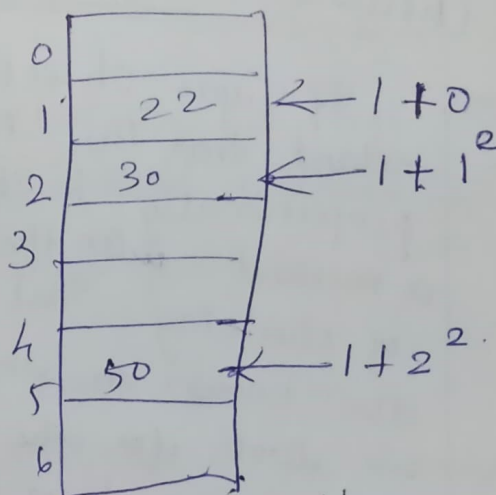 0
1 22 ← 1 + 0
2 30 ← 1 + 1²
3
4
5 50 ← 1 + 2²
6